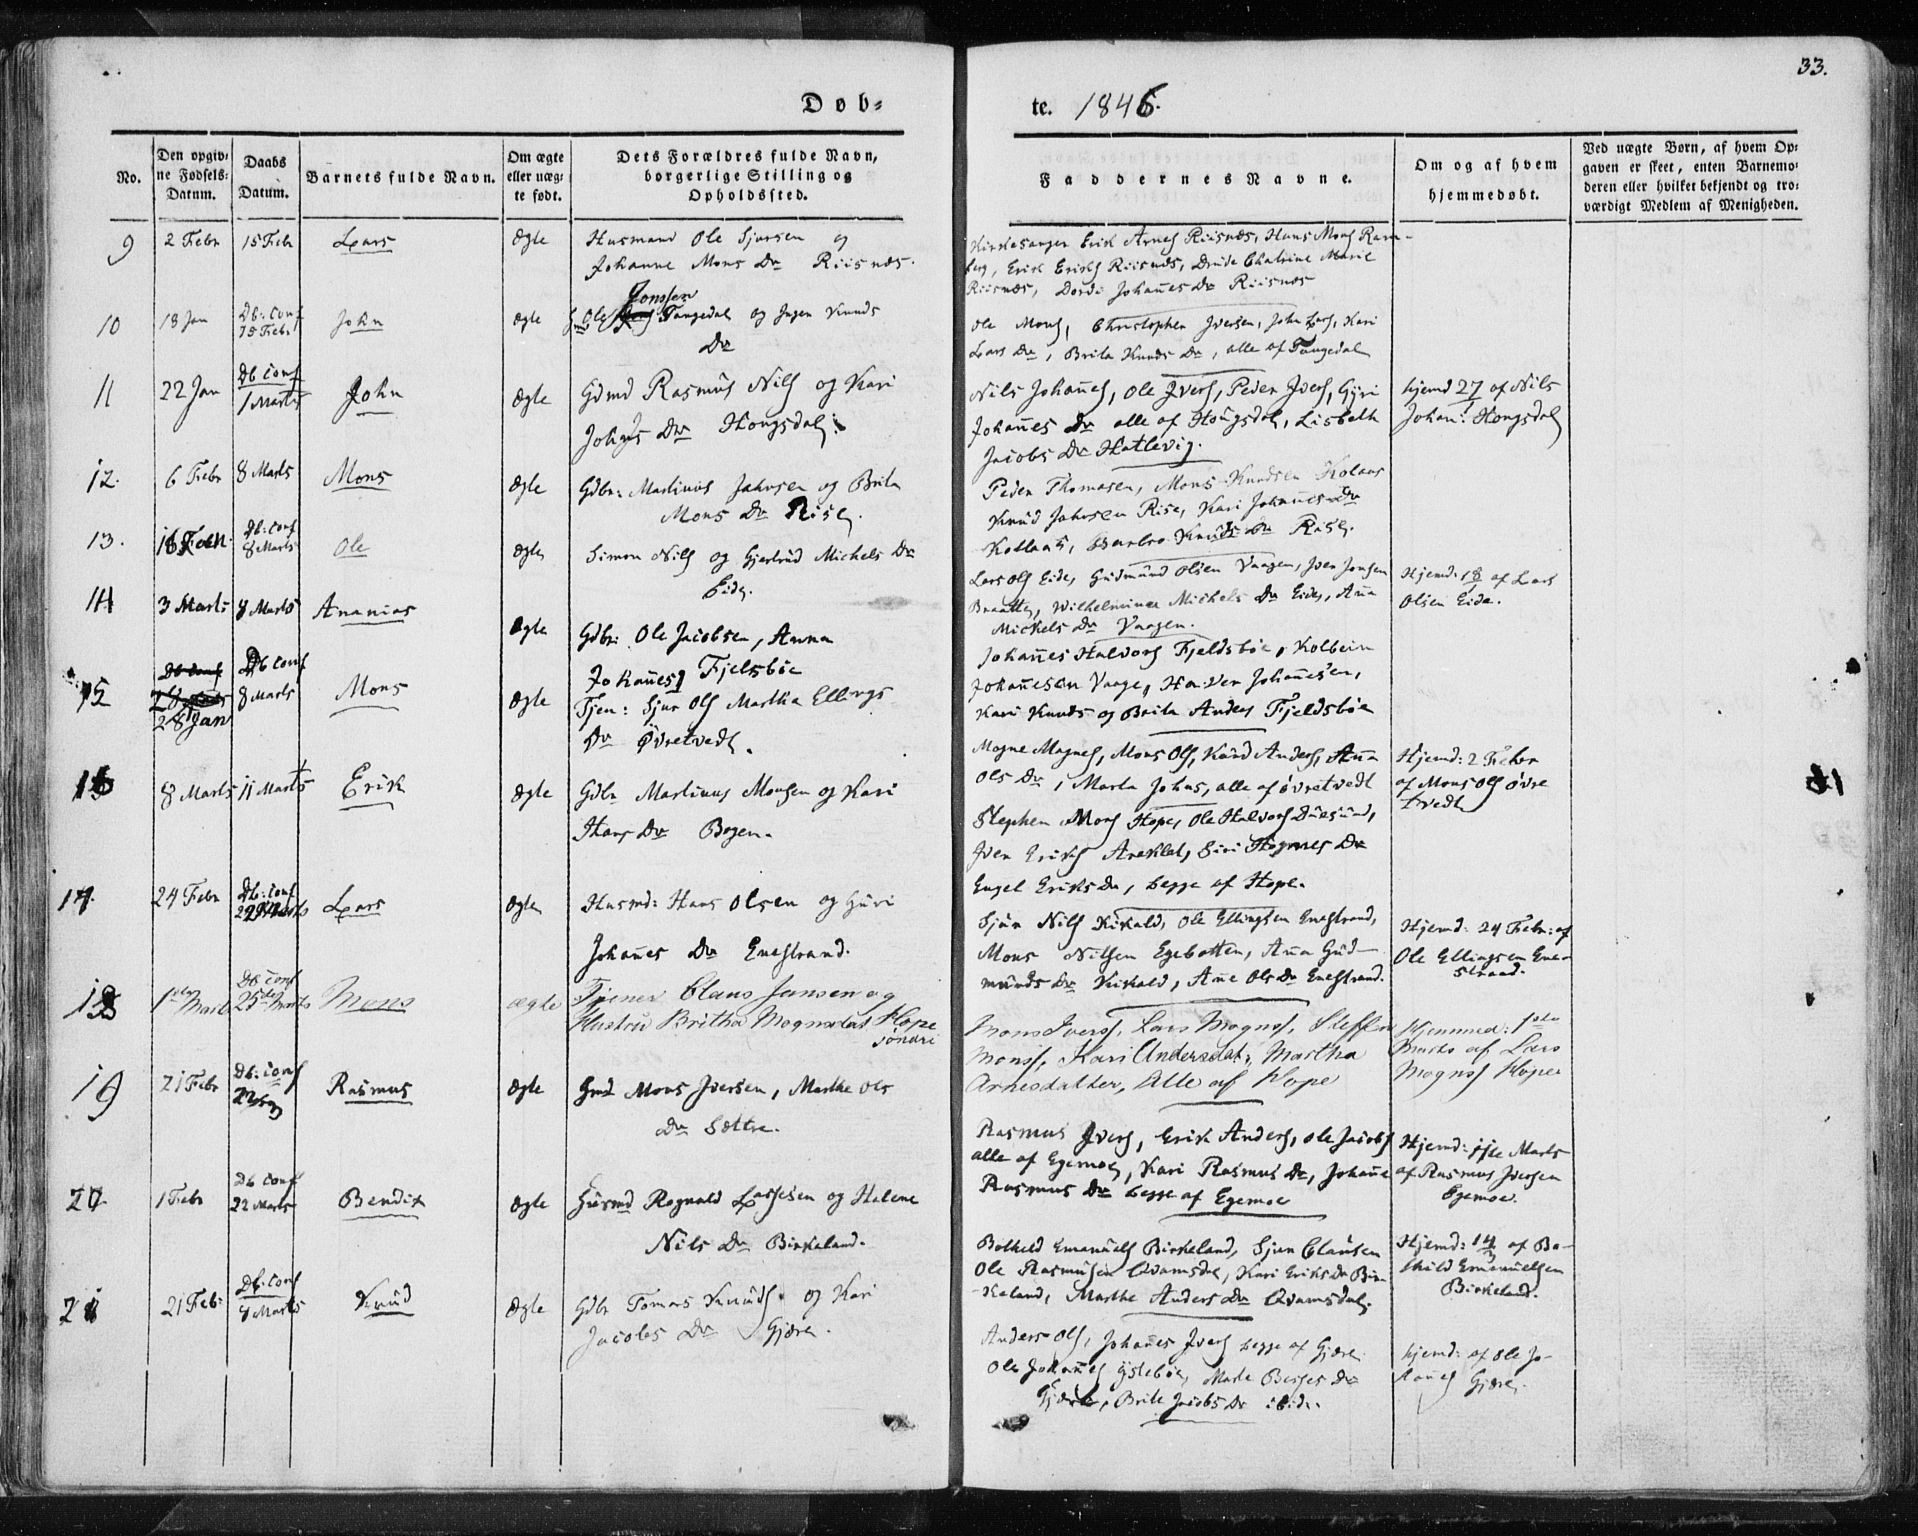 33.
Døb-
te. 1846.
No.
Den opgiv-
ne Fødsels-
Datum.
Daabs
Datum.
Barnets fulde Navn.
Om ægte
eller uæg-
te født.
Dets Forældres fulde Navn,
borgerlige Stilling og
Opholdssted.
Faddernes Navne.
Om og af hvem
hjemmedøbt.
Ved uægte Børn, af hvem Op-
gaven er skeet, enten Barnemo-
deren eller hvilket bekjendt og tro-
værdigt Medlem af Menigheden.
9 2 Febr 15 Febr Lars Ægte Husmand Ole Sjursen og
Johanne Mons Dr Riisnæs.
Kirkesanger Erik Arnes Riisnæs, Hans Mons Ram-
berg, Erik Eriks Riisnæs, Drude Chatrine Marie
Riisnæs, Dordi Johanes Dr Riisnæs
10 18 Jan Db: conf
15 Febr John ægte Ole Jonssen Tangedal og Inger Knuds
Dr
Ole Mons, Christophen Iversen, John Lars, Kari
Lars Dr, Brita Knuds Dr, alle af Tangedal
11 22 Jan Db conf
1 Marts John Ægte Gdmd Rasmus Nils og Kari
Johans Dr Hougsdal.
Nils Johanes, Ole Ivers, Peder Ivers, Gyri
Johanes Dr alle af Hougsdal, Lisbeth
Jacobs Dr Hatlevig.
hjemd 27/1 af Nils
Johan: Hougsdal
12. 6 Febr 8 Marts Mons Ægte Gdbr: Martinus Jahnsen og Brita
Mons Dr Rise.
Peder Thomasen, Mons Knudsen Kolaas
Knud Jahnsen Rise, Kari Johannes Dr
Kollaas, Barbro Knuds Dr Rise.
13. 16 Jan. Db: conf
8 Marts Ole Ægte Simon Nils og Gjertrud Michels Dr
Eide.
Lars Ols Eide, Gudmund Olsen Vaagen, Iver Jonsen
Braatte, Wilhelmine Michels Dr Eide, Ana
Mickels Dr Vaagen.
Hjemd: 18/1 af Lars
Olsen Eide.
14 3 Marts 8 Marts Ananias Ægte Gdbr: Ole Jacobsen, Anna
Johanes Fjelsbøe
Johanes Halvors Fjeldsbøe, Kolbein
Johanesen Vaage, Halver Johannesen,
Kari Knuds og Brita Anders Fjeldsbøe
15 28 Jan Db conf
8 Marts Mons Ægte Tjen: Sjur Ols Martha Ellings
Dr Øvretvedt.
Mogne Magnes, Mons Ols, Knud Anders, Ana
Ols Dr, Marta Johns, alle af øvretvedt
Hjemd: 2 Febr
af Mons Ols Øvre
tvedt
16 8 Marts 11 Marts Erik Ægte Gdbr Martinus Monsen og Kari
Hans Dr Bogen.
Stephen Mons Hope, Ole Halvors Duesund,
Iver Eriks Areklet, Siri Mognes Dr
Engel Eriks Dr, begge af Hope.
17. 24 Febr Db: conf
22 Marts Lars Ægte Husmd: Hans Olsen og Guri
Johanes Dr Enestrand.
Sjur Nils Kikald, Ole Ellingsen Enestrand,
Mons Nilsen Egebotten, Ana Gud-
munds Dr Kikald, Ane Ols Dr Enestrand.
Hjemd: 24 Febr: af
Ole Ellingsen Ene-
strand.
18 1ste Marts Db conf
25de Marts Mons ægte Tjener Claus Jansen og
Hustru Britha Mognsdat Hope
søndri
Mons Iverss, Lars Mognss, Steffen
Monss, Kari Andersdat:, Martha
Arnesdatter, Alle af Hope
Hjemmed: 1ste
Marts af Lars
Mognss Hope
19 21 Febr Db: conf
22/3 Rasmus Ægte Gmd Mons Iversen, Marthe Ols
Dr Sættre.
Rasmus Ivers, Erik Anders, Ole Jacobs
alle af Egemoe, Kari Rasmus Dr, Johane
Rasmus Dr begge af Egemoe
Hjemd: 1ste Marts
af Rasmus Iversen
Egemoe.
20. 1 Febr Db conf
22 Marts Bendix Ægte Husmd Rognald Lassesen og Helene
Nils Dr Birkeland.
Botheld Emanuels Birkeland, Sjur Clausen
Ole Rasmusen Qvamsdal, Kari Eriks Dr Bir-
keland, Marthe Anders Dr Qvamsdal.
Hjemd: 14/3 af Bo-
thild Emanuelsen
Birkeland.
21 21 Feb: Db: conf
Marts Knud Ægte Gdbr Tomas Knuds og Kari
Jacobs Dr Gjære.
Anders Ols, Johanes Ivers begge af Gjære
Ole Johanes Ystebøe, Marte Berges Dr
Gjære, Brite Jacobs Dr ibid.
hjemd: af Ole Jo-
hanes Gjære.
18